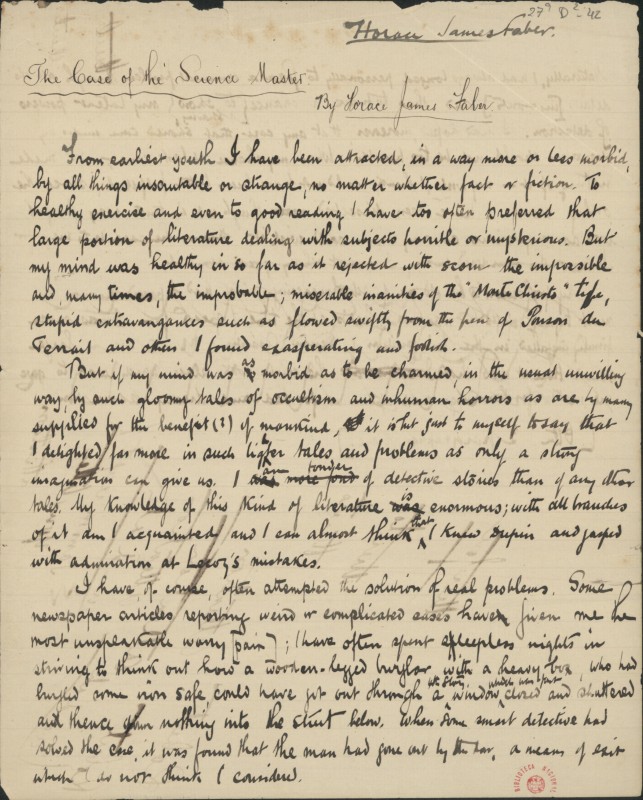 27⁹ D²-42
Horace James Faber.
The Case of the Science Master
By Horace James Faber
From earliest youth I have been attracted, in a way more or less morbid,
by all things inscrutable or strange, no matter whether fact or fiction. To
healthy exercise and even to good reading I have too often preferred that
large portion of literature dealing with subjects horrible or mysterious. But
my mind was healthy in so far as it rejected with scorn the impossible
and, many times, the improbable; miserable inanities of the "Monte Christo" type,
stupid extravangances such as flowed swiftly from the pen of Ponson du
Terrail and others I found exasperating and foolish.
But if my mind was as morbid as to be charmed, in the usual unwilling
way, by such gloomy tales of occultism and inhuman horrors as are by many
supplied for the benefit (?) of mankind, it is but just to myself to say that
I delighted far more in such lighter tales and problems as only a strong
imagination can give us. I am fonder of detective stories than of any other
tales. My knowledge of this kind of literature is enormous; with all branches
of it am I acquainted and I can almost think that I knew Dupin and gasped
with admiration at Lecoq's mistakes.
I have, of course, often attempted the solution of real problems. Some
newspaper articles reporting weird or complicated cases have given me the
most unspeakable worry [pain]; I have often spent sleepless nights in
striving to think out how a wooden-legged burglar with a heavy box, who had
burgled some iron safe could have got out through a window closed and shuttered
and thence down nothing into the street below. When some smart detective had
solved the case, it was found that the man had gone out by the door, a means of exit
which I do not think I considered.
BIBLIOTECA NACIONAL